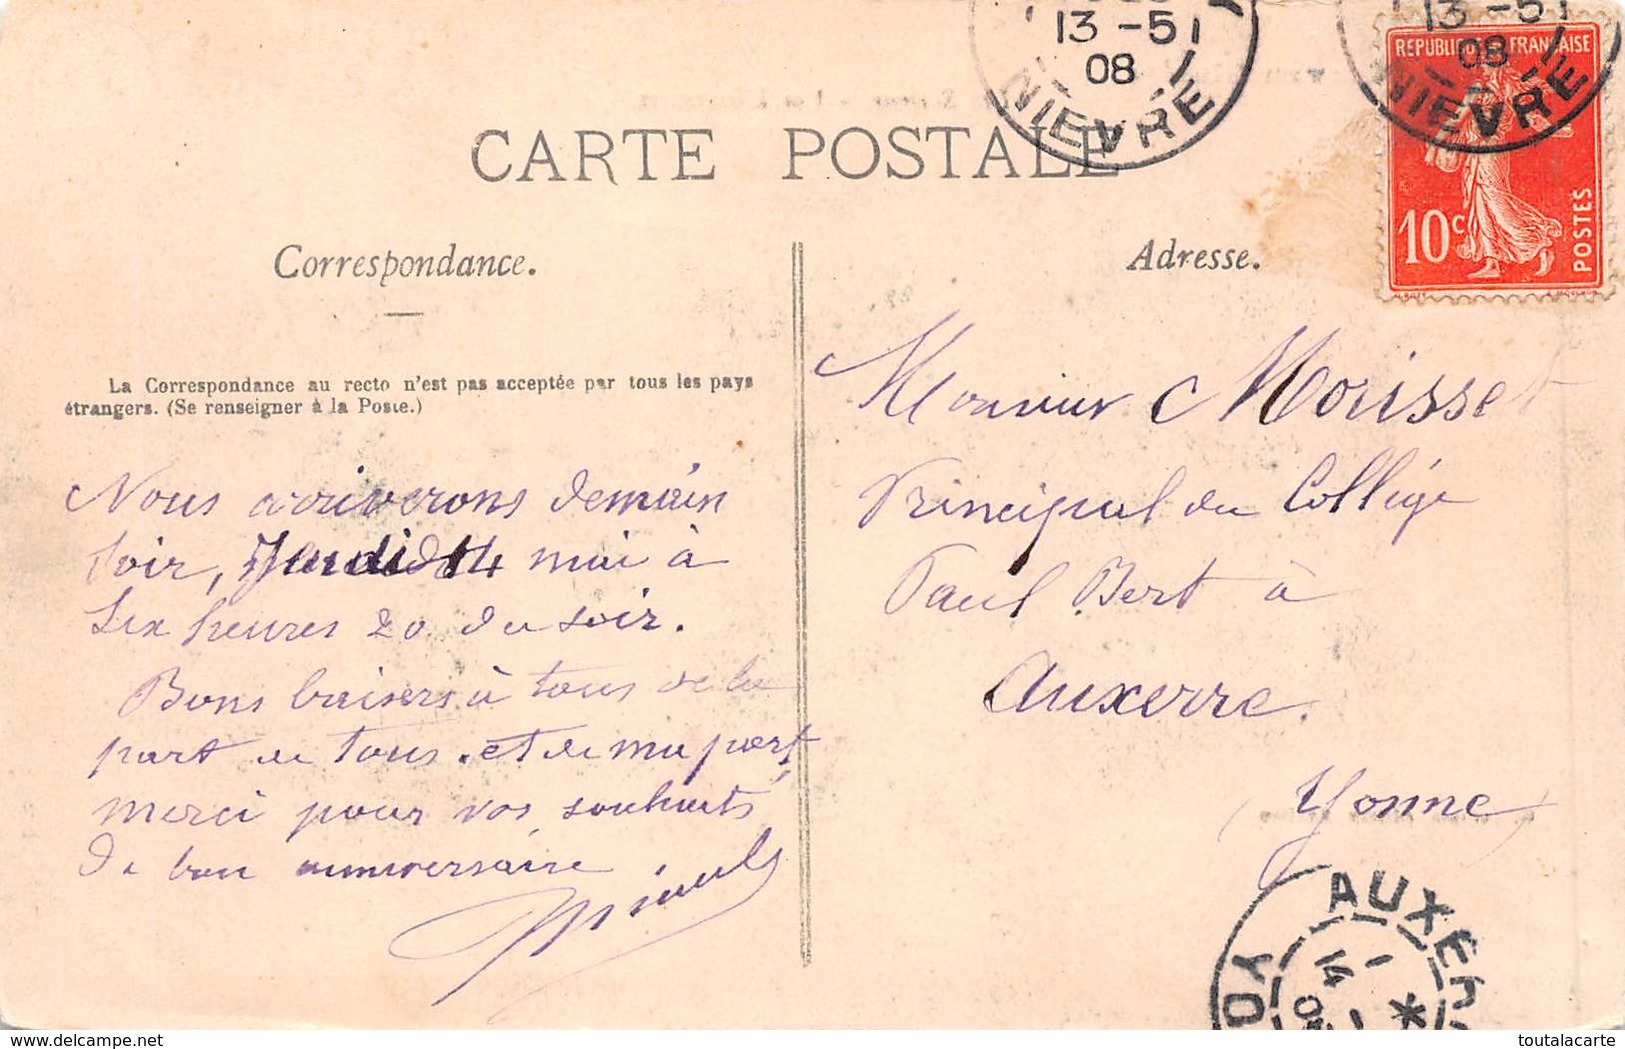 13 -5
08
NIEVRE
13 -5
08
NIEVRE
REPUBLIQUE FRANÇAISE
10c
POSTES
CARTE POSTALE
Correspondance.
Adresse.
La Correspondance au recto n'est pas acceptée par tous les pays
étrangers. (Se renseigner à la Poste.)
Nous arriverons demain
soir, Jeudi 14 mai à
six heures 20 du soir.
Bons baisers à tous de la
part de tous. et de ma part
merci pour vos souhaits
de bon anniversaire
Monsieur Morisset
Principal du Collège
Paul Bert à
Auxerre.
(Yonne)
AUXERR
14
YO
toutalacarte